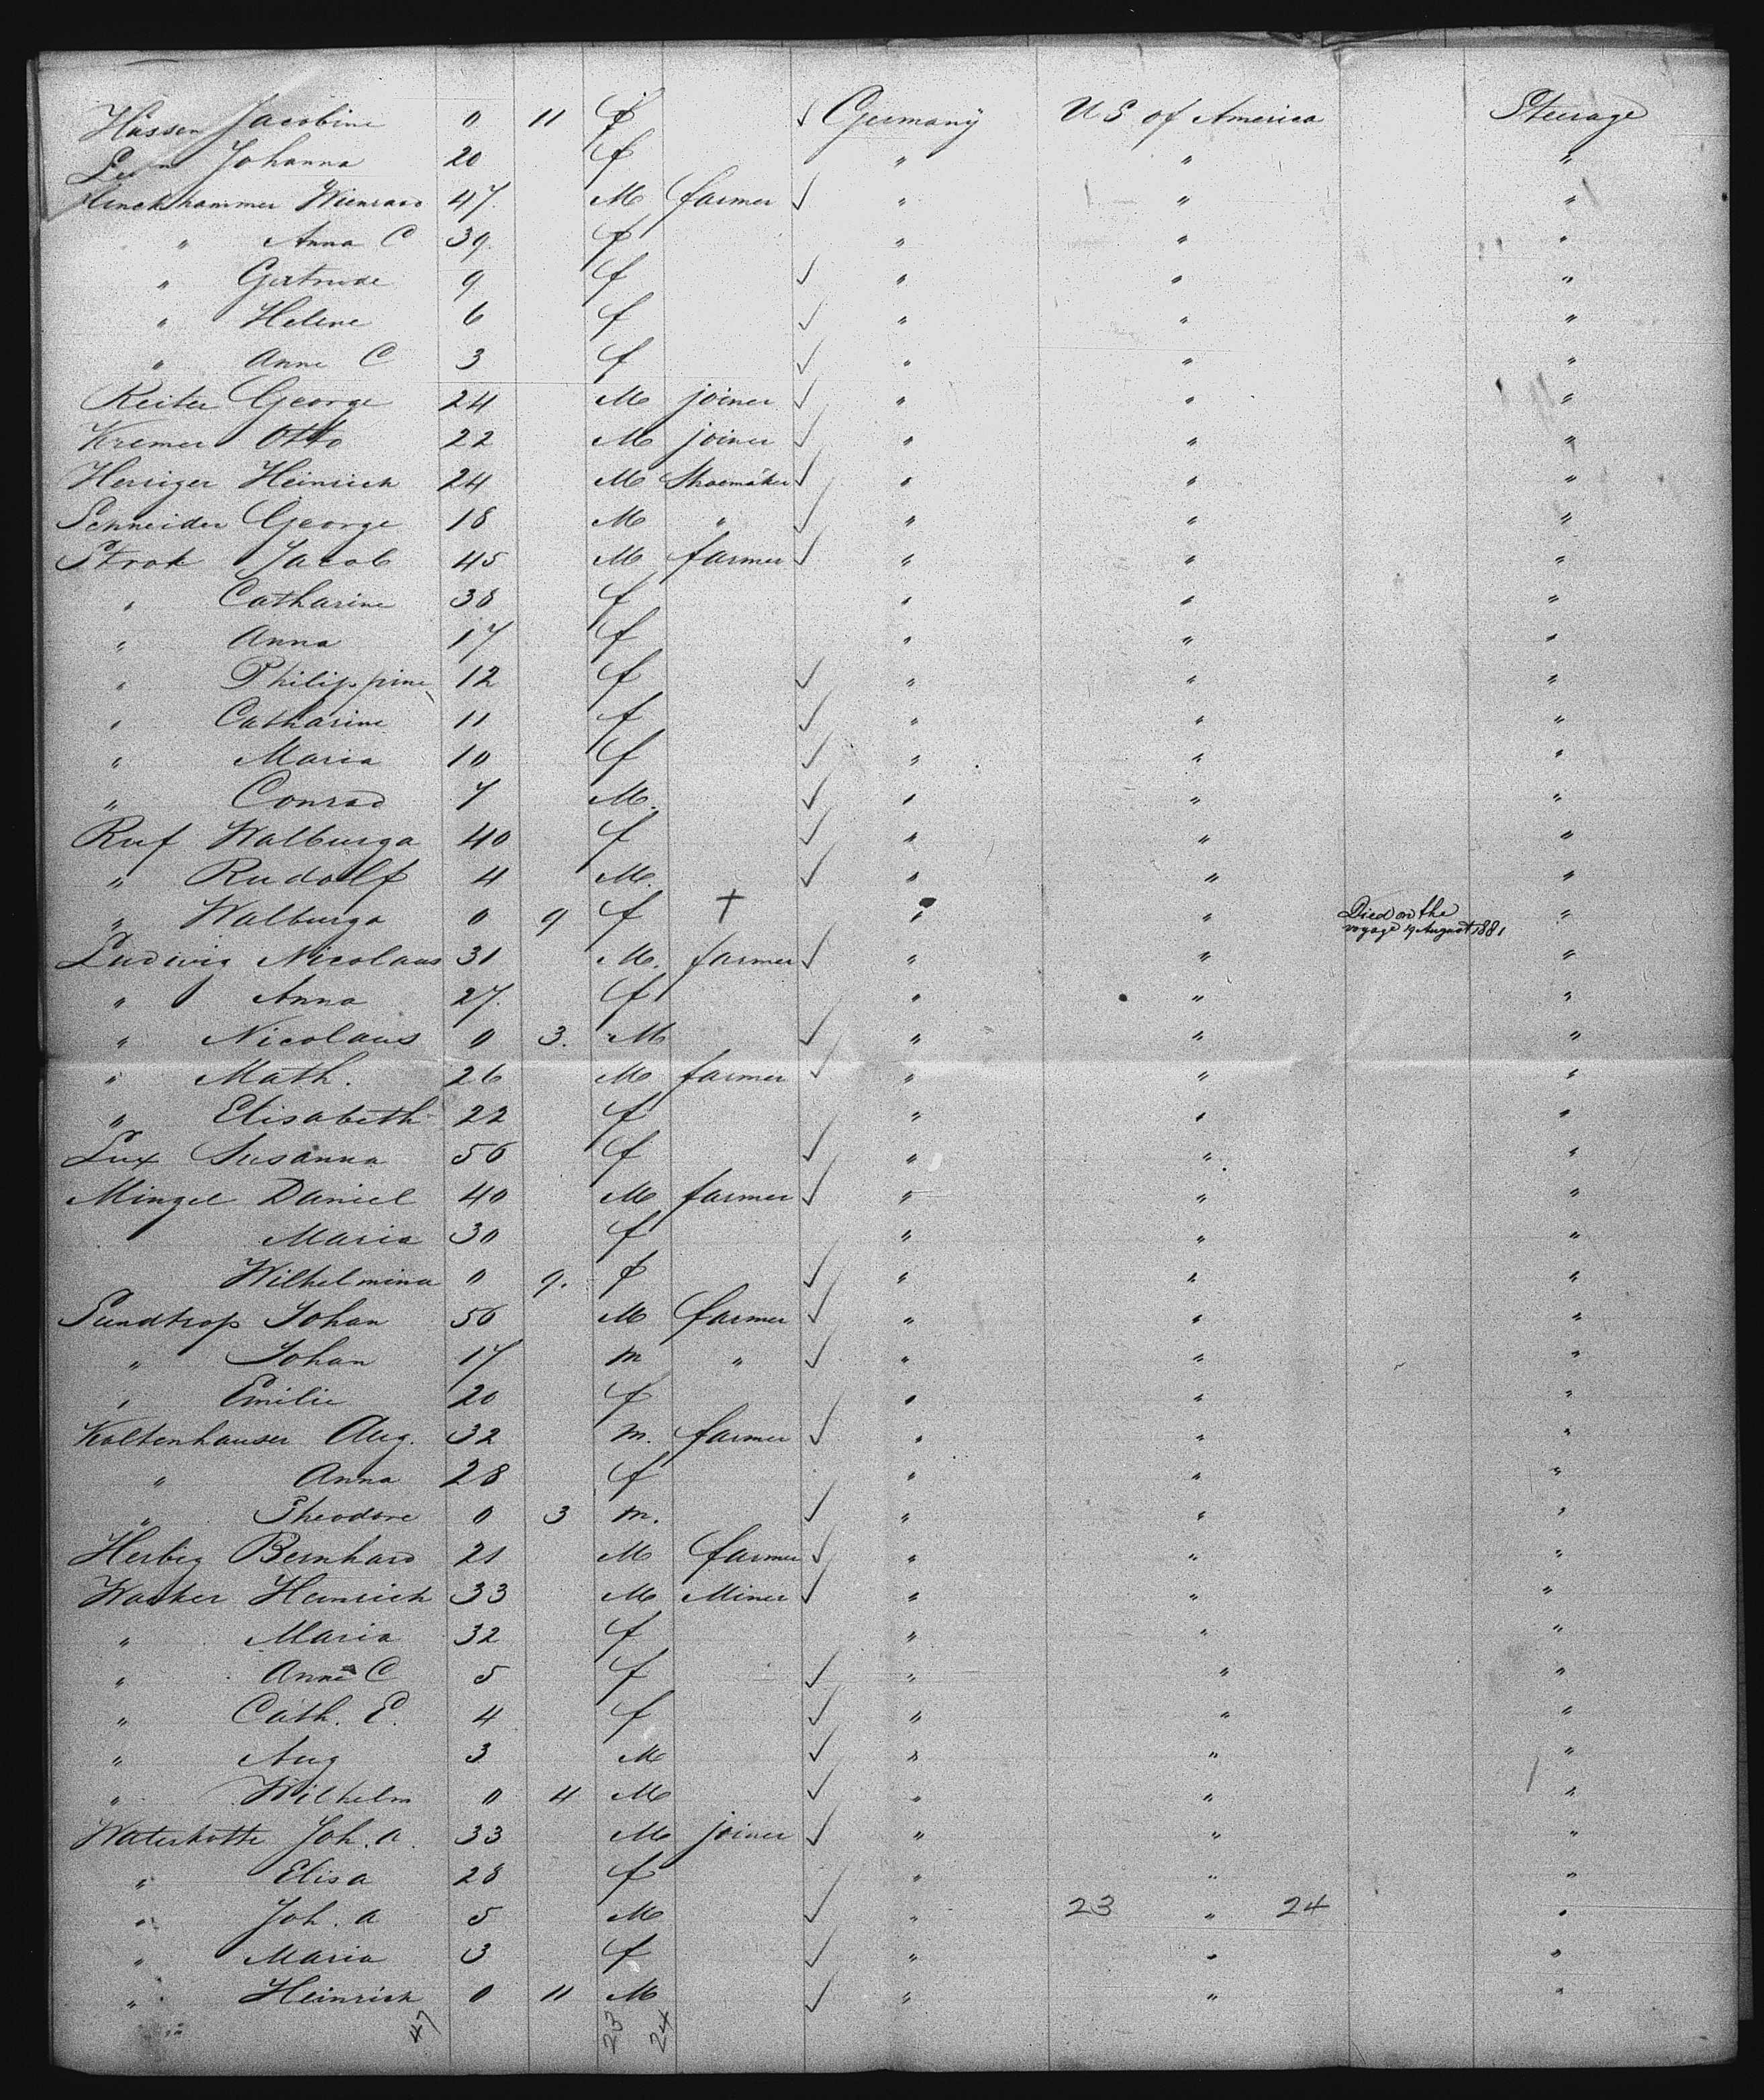 Hüssen Jacobine 0 11 f ✓ Germany US of America Steerage
Johanna 20 f " " "
Wienand 47 M farmer ✓ " " "
" Anna C 39 f " " "
" Gertrude 9 f ✓ " " "
" Helene 6 f ✓ " " "
" Anne C 3 f ✓ " " "
Reiter George 24 M joiner ✓ " " "
Kremer Otto 22 M joiner ✓ " " "
Heriger Heinrich 24 M Shoemaker ✓ " " "
Schneider George 18 M " ✓ " " "
Strok Jacob 45 M farmer ✓ " " "
" Catharine 38 f " " "
" Anna 17 f " " "
" Philippine 12 f ✓ " " "
" Catharine 11 f ✓ " " "
" Maria 10 f ✓ " " "
" Conrad 7 M. ✓ " " "
Ruf Walburga 40 f ✓ " " "
" Rudolf 4 M. ✓ " " "
" Walburga 0 9 f † " " Died on the voyage 19 August 1881 "
Ludwig Nicolaus 31 M. farmer ✓ " " "
" Anna 27. f " " "
" Nicolaus 0 3. M ✓ " " "
" Math. 26 M farmer ✓ " " "
" Elisabeth 22 f " " "
Lux Susanna 56 f ✓ " " "
Mingel Daniel 40 M farmer ✓ " " "
Maria 30 f " " "
Wilhelmina 0 9. f ✓ " " "
Sundtrop Johan 56 M farmer ✓ " " "
" Johan 17 m " ✓ " " "
" Emilie 20 f " " "
Koltenhauser Aug. 32 m. farmer ✓ " " "
" Anna 28 f " " "
" Theodore 0 3 m. ✓ " " "
Herbig Bernhard 21 M farmer ✓ " " "
Wacker Heinrich 33 M Miner ✓ " " "
" Maria 32 f " " "
" Anna C 5 f ✓ " " "
" Cath. E. 4 f ✓ " " "
" Aug 3 M ✓ " " "
" Wilhelm 0 4 M ✓ " " "
Waterkotte Joh. A. 33 M joiner ✓ " " "
" Elisa 28 f " " "
" Joh. A 5 M ✓ " 23 " 24 "
" Maria 3 f ✓ " " "
" Heinrich 0 11 M ✓ " " "
47 23 24